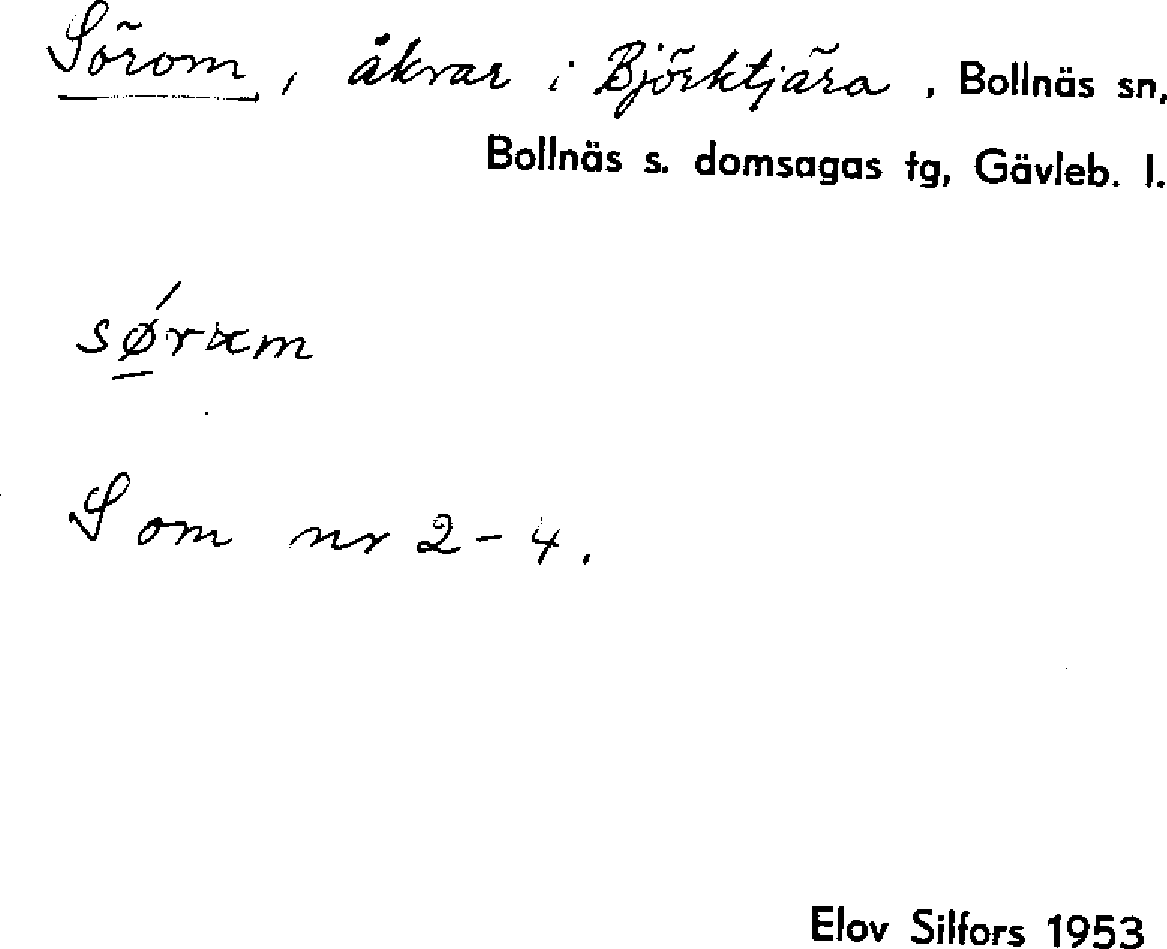 Sörom, åkrar i Björktjära, Bollnäs sn,
Bollnäs s. domsagas tg, Gävleb. l.
sǿ̱rɷm
Som nr 2-4.
Elov Silfors 1953